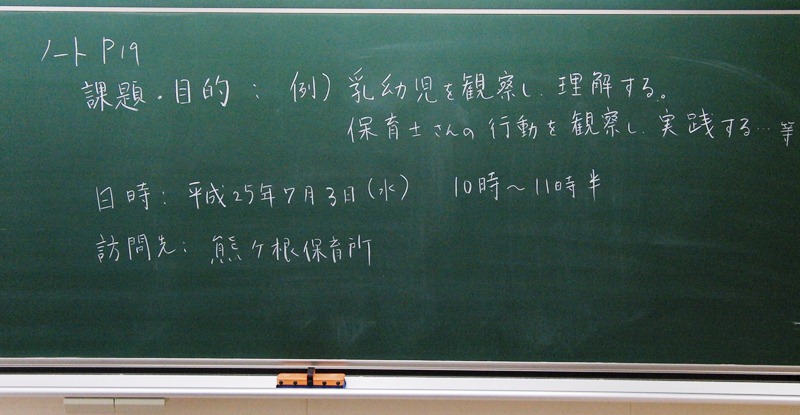 ノート P19
課題・目的： 例） 乳幼児を観察し、理解する。
保育士さんの行動を観察し、実践する… 等
日時： 平成25年7月3日（水） 10時～11時半
訪問先： 熊ヶ根保育所